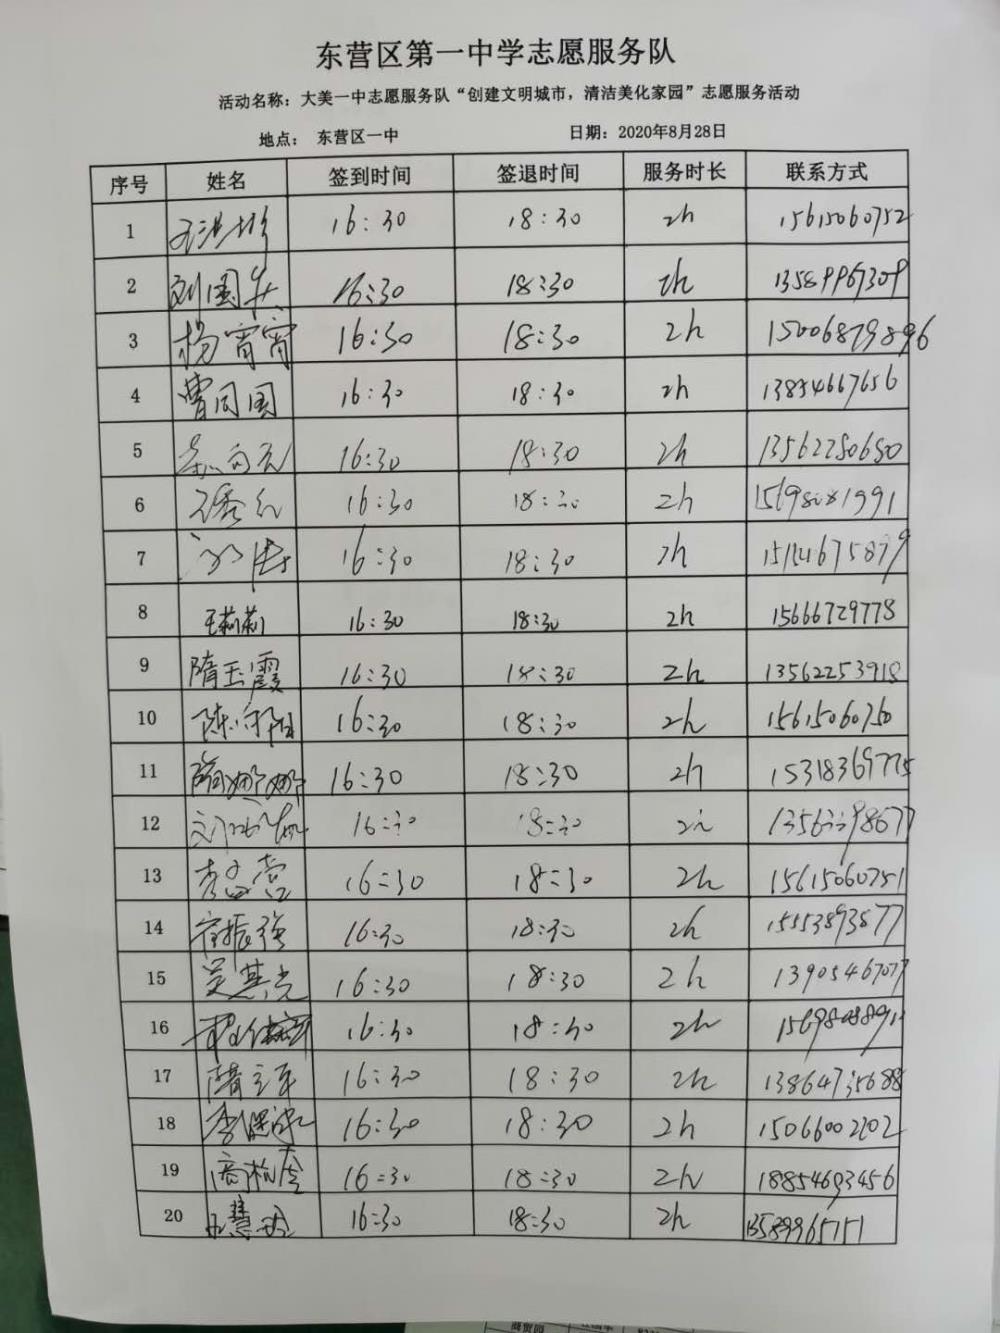 东营区第一中学志愿服务队
活动名称：大美一中志愿服务队“创建文明城市，清洁美化家园”志愿服务活动
地点： 东营区一中 日期：2020年8月28日
序号 姓名 签到时间 签退时间 服务时长 联系方式
1 16:30 18:30 2h 15615060752
2 刘国庆 16:30 18:30 2h
3 杨宵宵 16:30 18:30 2h 15006879896
4 曹同国 16:30 18:30 2h 13854667656
5 16:30 18:30 2h 13562280680
6 16:30 18:30 2h
7 16:30 18:30 2h
8 王莉莉 16:30 18:30 2h 15666729778
9 隋玉霞 16:30 18:30 2h 13562253918
10 16:30 18:30 2h 15615060750
11 隋娜娜 16:30 18:30 2h 15318369775
12 16:30 18:30
13 16:30 18:30 2h 15615060751
14 16:30 18:30 2h 15553893577
15 吴其光 16:30 18:30 2h 13905467077
16 16:30 18:30 2h
17 隋立军 16:30 18:30 2h 13864735688
18 16:30 18:30 2h 15066002202
19 16:30 18:30 2h 18854693456
20 16:30 18:30 2h 13589965151